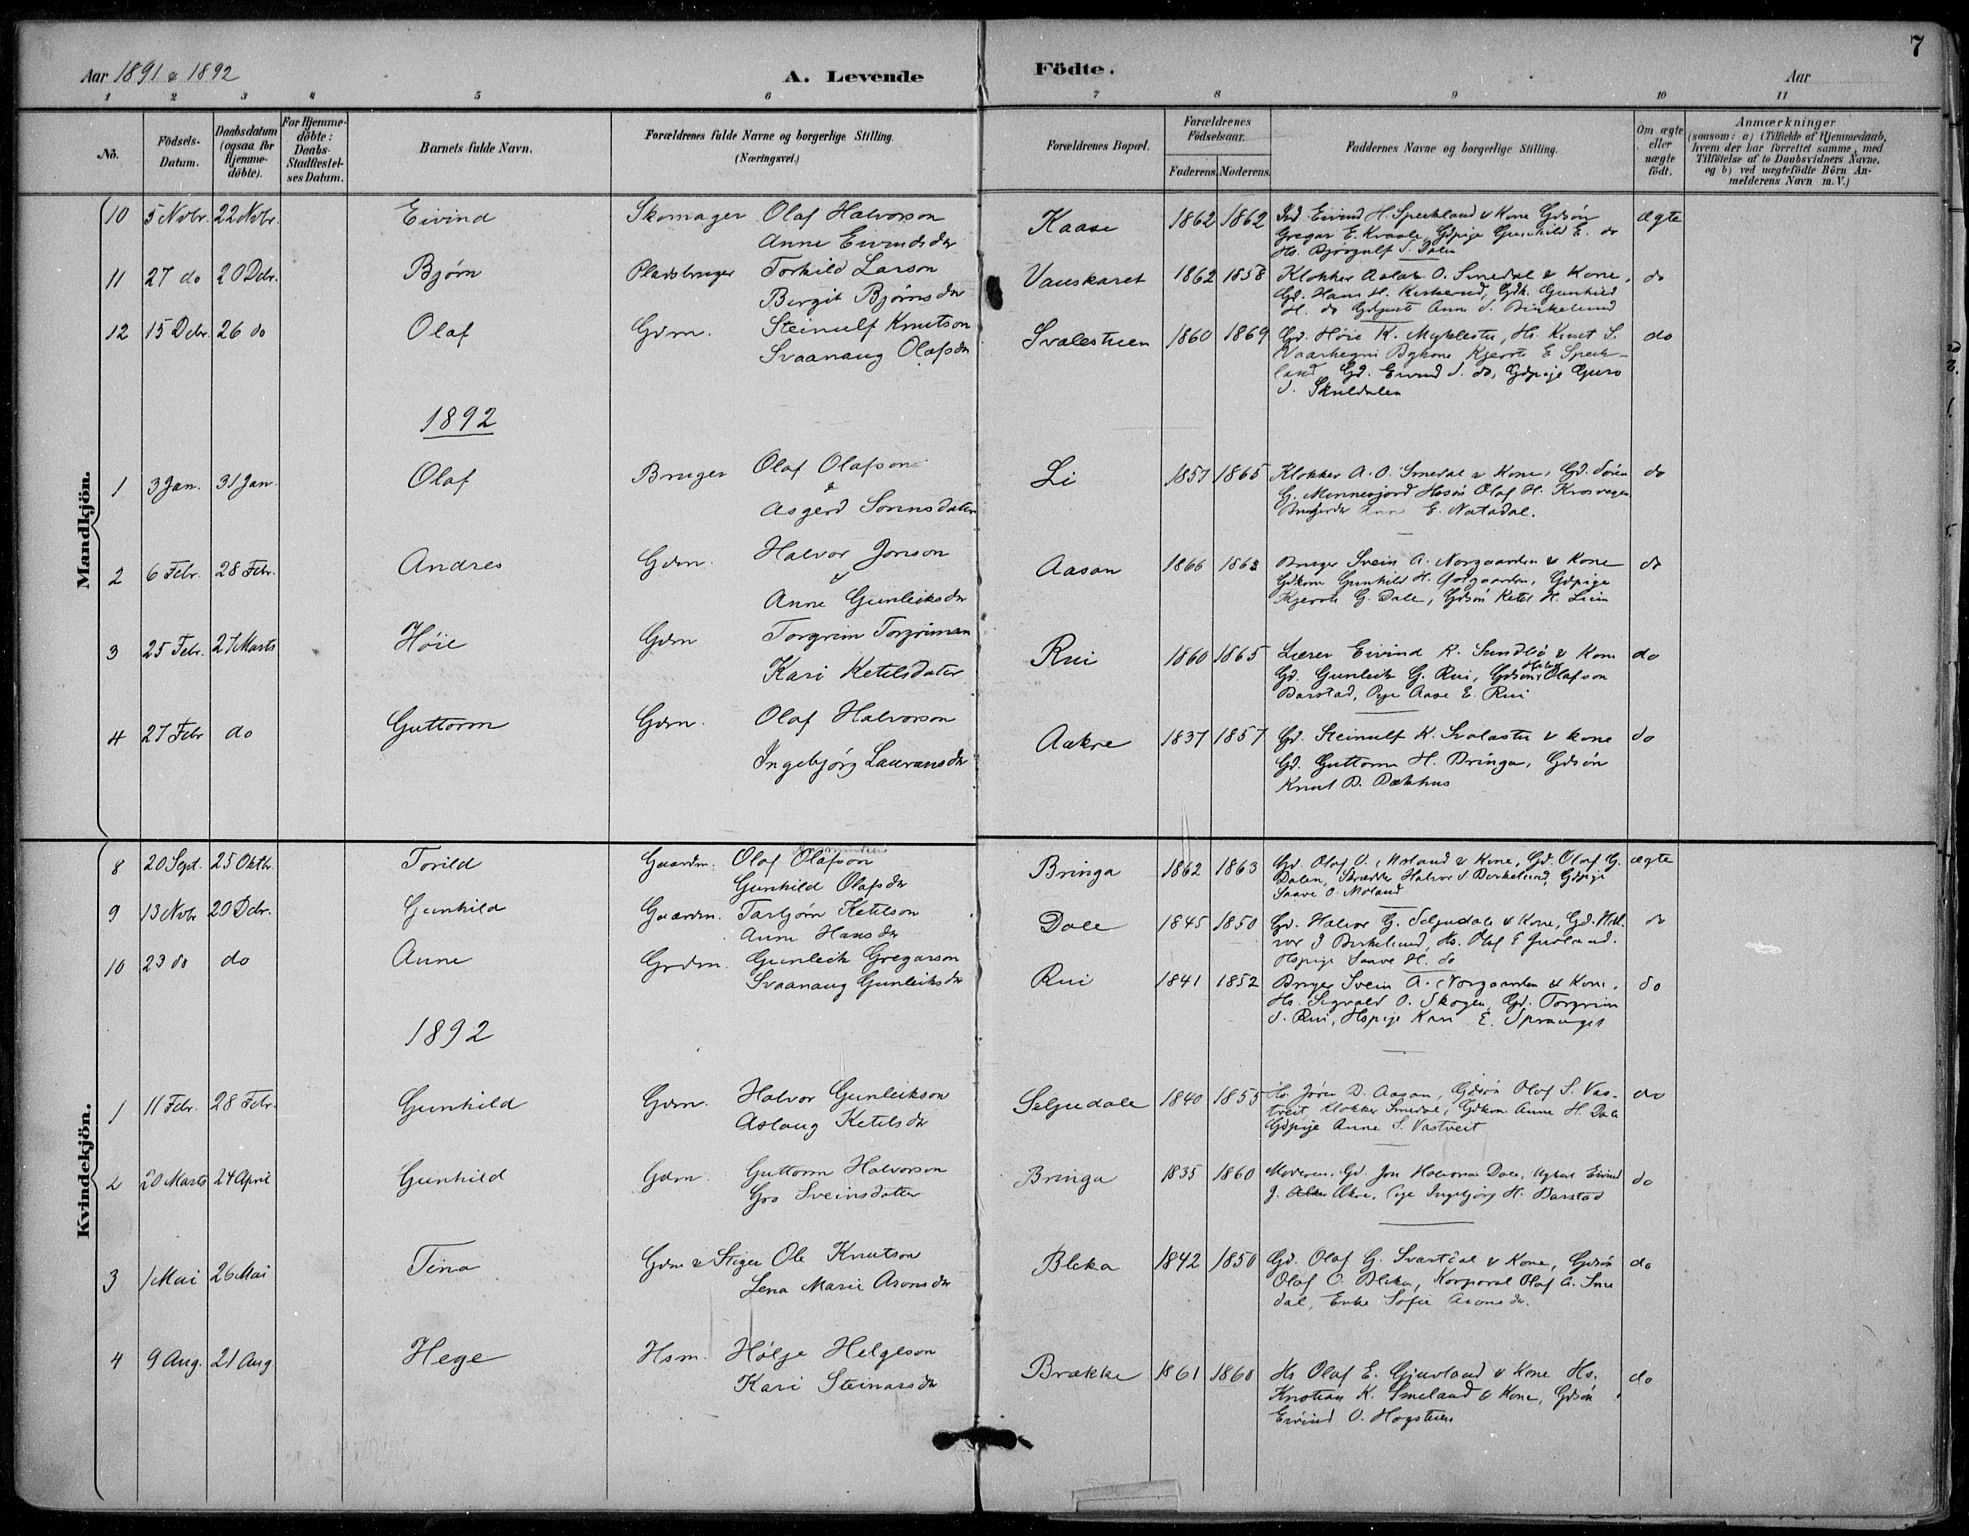 7
Aar 1891 & 1892 A. Levende Födte. Aar
1 2 3 4 5 6 7 8 9 10 11
No. Födsels-Datum. Daabsdatum (ogsaa for Hjemme-döbte). For Hjemme-döbte: Daabs-Stadfæstel-ses Datum. Barnets fulde Navn. Forældrenes fulde Navne og borgerlige Stilling. (Næringsvei.) Forældrenes Bopæl. Forældrenes Födselsaar. Faderens. Moderens. Faddernes Navne og borgerlige Stilling. Om ægte eller uægte födt. Anmærkninger (saasom: a) i Tilfælde af Hjemmedaab, hvem der har forrettet samme, med Tilföielse af to Daabsvidners Navne, og b) ved uægtefödte Börn An-melderens Navn m. V.)
Mandkjön.
10 5 Nvbr. 22 Nvbr. Eivind Skomager Olaf Halvorson Kaase 1862 1862 Gd. Eivind H. Speckland & Kone Gdsøn ægte
Anne Eivindsdr Gregar E. Kvaale, Gdpige Gunhild E. do
Hs. Bjørgulf S. Dalen
11 27 do 20 Dcbr. Bjørn Pladsbruger Torkild Larson Vauskaret 1862 1858 Klokker Aslak O. Smedal & Kone, do
Birgit Bjørnsdr Gd. Hans H. Gdk. Gunhild
H. do Anne S. Birkelund
12 15 Dcbr. 26 do Olaf Gdm. Steinulf Knutson Svalestuen 1860 1869 Gd. Høie K. Myklestu, Hs. Knut S. do
Svaanaug Olafsdr Kjersti E. Speck-
land Gd. Eivind S. do, Gdpige Guro
S. Skuldalen
1892
1 3 Jan. 31 Jan. Olaf Bruger Olaf Olafson Li 1857 1865 Klokker A. O. Smedal & Kone, Gd. Søren do
& Asgerd Sørensdatter G. Minnesjord Olaf H. Krosvegen
E. Natadal.
2 6 Febr. 28 Febr. Andres Gdm. Halvor Jonson Aasan 1866 1862 Bruger Svein A. Norgaarden & Kone do
& Anne Gunleiksdr Gdkone Gunhild H. Gdpige
Kjersti G. Dale, Gdsøn Ketel H. Lien
3 25 Febr. 27 Marts Høie Gdm Torgrim Torgrimsen Rui 1860 1865 Lærer Eivind K. Sundbø & Kone do
Kari Ketilsdater Gd. Gunleik G. Rui, Gdsøn Halvor Olafson
Barstad, Pige Aase E. Rui
4 27 Febr do Guttorm Gdm. Olaf Halvorson Aakre 1837 1857 Gd. Steinulf K. Svalastu & Kone do
Ingebjørg Lauransdr Gd. Guttorm H. Bringa, Gdsøn
Knut B. Bakhus
Kvindekjön.
8 20 Sept. 25 Oktbr. Torild Gaardm. Olaf Olafson Bringa 1862 1863 Gd. Olaf O. Moland & Kone, Gd. Olaf G. ægte
Gunhild Olafsdr Dalen, Skrædder Halvor S Birkelund, Gdpige
Saave O. Moland
9 13 Nvbr 20 Dcbr. Gunhild Gaardm. Tarbjørn Ketilson Dale 1845 1850 Gd. Halvor G. Seljudale & Kone, Gd. Hal- do
Anne Hansdr vor J Birkelund, Hs. Olaf E Juvland.
Hspige Saave H. do
10 23 do do Anne Grdm. Gunleik Gregarson Rui 1841 1852 Bruger Svein A. Norgaarden & Kone, do
Svaanaug Gunleiksdr Hs. Sigvald O. Skogen, Gd. Torgrim
S. Rui, Hspige Kari E. Spraanget
1892
1 11 Febr. 28 Febr. Gunhild Gdm. Halvor Gunleikson Seljudale 1840 1855 Hs. Jøren D. Aasan, Gdsøn Olaf S. Vas- do
Aslaug Ketilsdr tveit Klokker Smedal, Gdkone Anne H. Dale
Gdpige Anne S. Vastveit
2 20 Marts 24 April Gunhild Gdm. Guttorm Halvorson Bringa 1835 1860 Moderen, Gd. Jon Halvorson Dale, Ugkarl Eivind do
Gro Sveinsdatter J. Akre, Pige Ingebjørg H. Barstad
3 1 Mai 26 Mai Tina Gdm & Stiger Ole Knutson Bleka 1842 1850 Gd. Olaf G. Svartdal & Kone, Gdsøn do
Lena Marie Aronsdr Olaf O. Bleka, Korporal Olaf A. Sme
dal, Enke Sofie Aronsdr.
4 9 Aug. 21 Aug. Hege Hsm. Hølje Helgeson Brække 1861 1860 Hs Olaf E. Gjuvland & Kone Hs. do
Kari Steinarsdr Kristian K. Smeland & Kone, Gdsøn
Eivind O. Hogstuen